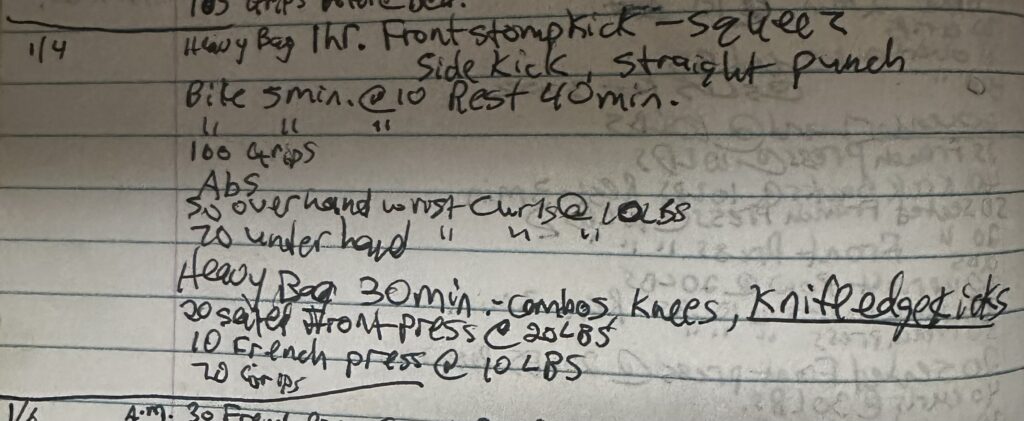 103 Grips before bed.
1/4 Heavy Bag 1hr. Front stomp kick - squeez
Side Kick, straight punch
Bike 5min. @ 10 Rest 40min.
" " "
100 Grips
Abs
50 overhand wrist curls @ 10LBS
20 underhand " " "
Heavy Bag 30min - combos, Knees, Knifedgekicks
20 seated front press @ 20LBS
10 French press @ 10 LBS
20 Grips
A.M. 30 French